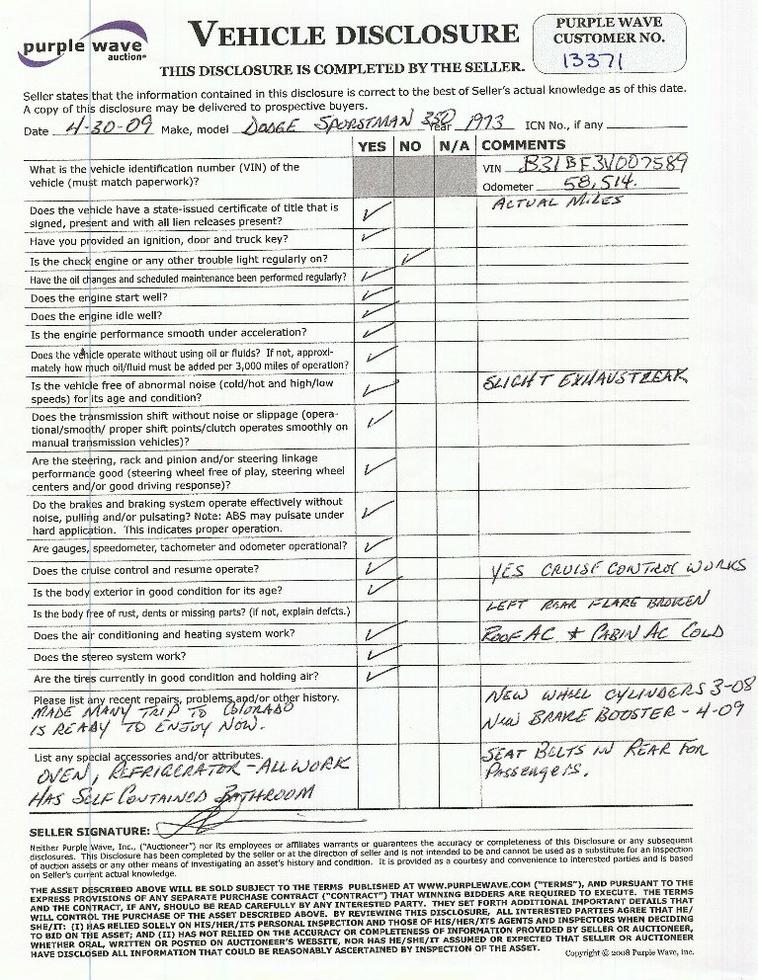 purple wave
auction®
VEHICLE DISCLOSURE
THIS DISCLOSURE IS COMPLETED BY THE SELLER.
PURPLE WAVE
CUSTOMER NO.
13371
Seller states that the information contained in this disclosure is correct to the best of Seller's actual knowledge as of this date.
A copy of this disclosure may be delivered to prospective buyers.
Date 4-30-09 Make, model DODGE SPORSTMAN 350 Year 1973 ICN No., if any
YES NO N/A COMMENTS
What is the vehicle identification number (VIN) of the
vehicle (must match paperwork)?
VIN B31BF3V007589
Odometer 58,514.
ACTUAL MILES
Does the vehicle have a state-issued certificate of title that is
signed, present and with all lien releases present?
Have you provided an ignition, door and truck key?
Is the check engine or any other trouble light regularly on?
Have the oil changes and scheduled maintenance been performed regularly?
Does the engine start well?
Does the engine idle well?
Is the engine performance smooth under acceleration?
Does the vehicle operate without using oil or fluids? If not, approxi-
mately how much oil/fluid must be added per 3,000 miles of operation?
Is the vehicle free of abnormal noise (cold/hot and high/low
speeds) for its age and condition?
SLIGHT EXHAUST LEAK
Does the transmission shift without noise or slippage (opera-
tional/smooth/ proper shift points/clutch operates smoothly on
manual transmission vehicles)?
Are the steering, rack and pinion and/or steering linkage
performance good (steering wheel free of play, steering wheel
centers and/or good driving response)?
Do the brakes and braking system operate effectively without
noise, pulling and/or pulsating? Note: ABS may pulsate under
hard application. This indicates proper operation.
Are gauges, speedometer, tachometer and odometer operational?
Does the cruise control and resume operate?
YES CRUISE CONTROL WORKS
Is the body exterior in good condition for its age?
Is the body free of rust, dents or missing parts? (if not, explain defcts.)
LEFT REAR FLARE BROKEN
Does the air conditioning and heating system work?
ROOF AC & CABIN AC COLD
Does the stereo system work?
Are the tires currently in good condition and holding air?
Please list any recent repairs, problems and/or other history.
MADE MANY TRIP TO COLORADO
IS READY TO ENJOY NOW.
NEW WHELL CYLINDERS 3-08
NEW BRAKE BOOSTER - 4-09
List any special accessories and/or attributes.
OVEN, REFRIGERATOR - ALL WORK
HAS SELF CONTAINED BATHROOM
SEAT BELTS IN REAR FOR
PASSENGERS.
SELLER SIGNATURE:
Neither Purple Wave, Inc., ("Auctioneer") nor its employees or affiliates warrants or guarantees the accuracy or completeness of this Disclosure or any subsequent
disclosures. This Disclosure has been completed by the seller or at the direction of seller and is not intended to be and cannot be used as a substitute for an inspection
of auction assets or any other means of investigating an asset's history and condition. It is provided as a courtesy and convenience to interested parties and is based
on Seller's current actual knowledge.
THE ASSET DESCRIBED ABOVE WILL BE SOLD SUBJECT TO THE TERMS PUBLISHED AT WWW.PURPLEWAVE.COM ("TERMS"), AND PURSUANT TO THE
EXPRESS PROVISIONS OF ANY SEPARATE PURCHASE CONTRACT ("CONTRACT") THAT WINNING BIDDERS ARE REQUIRED TO EXECUTE. THE TERMS
AND THE CONTRACT, IF ANY, SHOULD BE READ CAREFULLY BY ANY INTERESTED PARTY. THEY SET FORTH ADDITIONAL IMPORTANT DETAILS THAT
WILL CONTROL THE PURCHASE OF THE ASSET DESCRIBED ABOVE. BY REVIEWING THIS DISCLOSURE, ALL INTERESTED PARTIES AGREE THAT HE/
SHE/IT: (I) HAS RELIED SOLELY ON HIS/HER/ITS PERSONAL INSPECTION AND THOSE OF HIS/HER/ITS AGENTS AND INSPECTORS WHEN DECIDING
TO BID ON THE ASSET; AND (II) HAS NOT RELIED ON THE ACCURACY OR COMPLETENESS OF INFORMATION PROVIDED BY SELLER OR AUCTIONEER,
WHETHER ORAL, WRITTEN OR POSTED ON AUCTIONEER'S WEBSITE, NOR HAS HE/SHE/IT ASSUMED OR EXPECTED THAT SELLER OR AUCTIONEER
HAVE DISCLOSED ALL INFORMATION THAT COULD BE REASONABLY ASCERTAINED BY INSPECTION OF THE ASSET.
Copyright © 2008 Purple Wave, Inc.